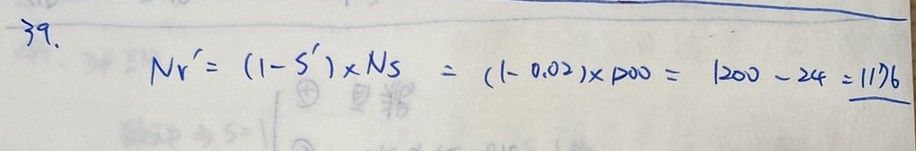 39.
Nr' = (1-S')×Ns = (1-0.02)×1200 = 1200-24 = 1176